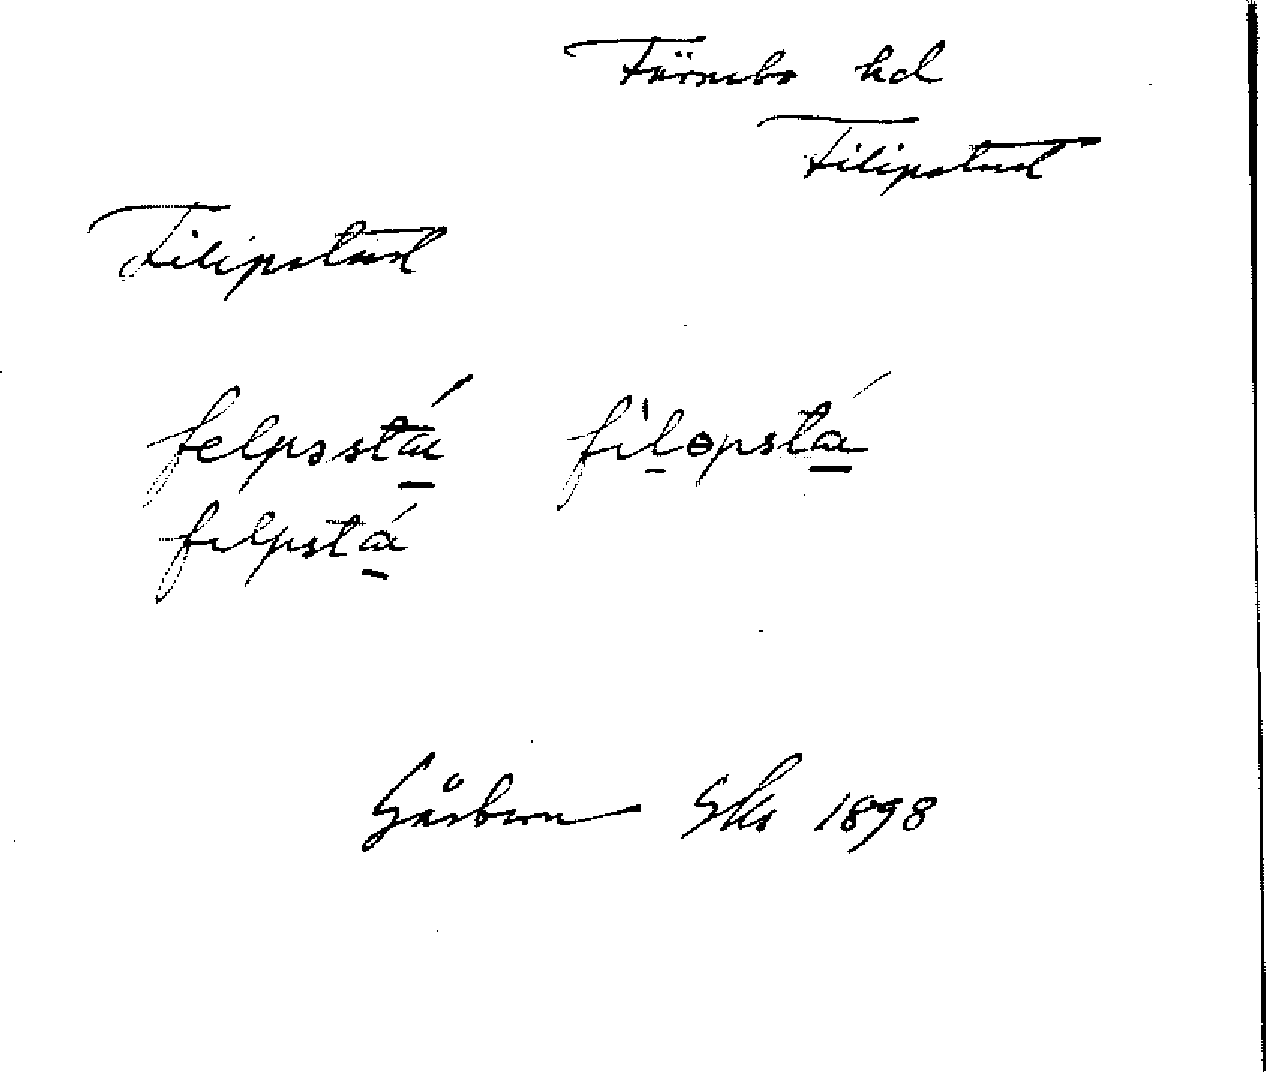 Färnebo hd
Filipstad
Filipstad
felpəstá filɵpstá
filpstá
Gåsborn Sks 1898